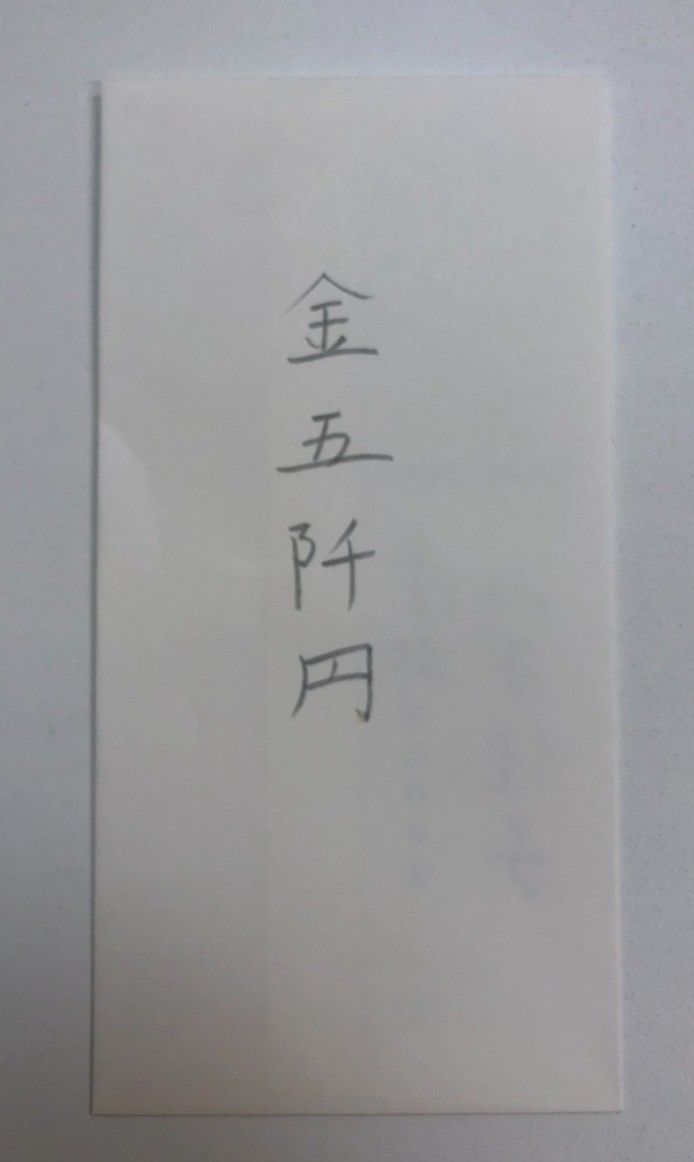 金五阡円